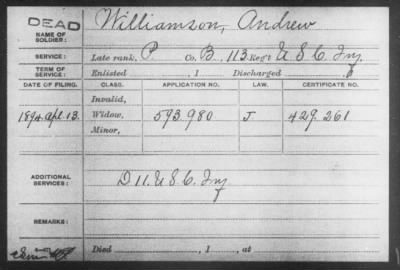 DEAD
NAME OF SOLDIER: Williamson, Andrew
SERVICE: Late rank, P Co. B, 113 Reg't U S C Inf
TERM OF SERVICE: Enlisted , 1 Discharged , 1
DATE OF FILING. CLASS. APPLICATION NO. LAW. CERTIFICATE NO.
Invalid,
1894 Apl. 13. Widow, 593.980 J. 429.261
Minor,
ADDITIONAL SERVICES: D 11. U S C. Inf
REMARKS:
Died , 1 , at